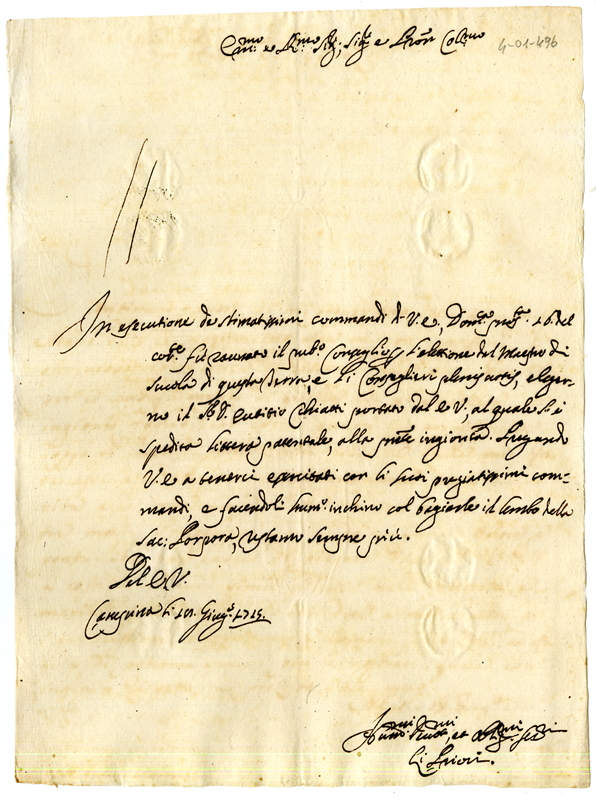 Em:mo e R:mo Sig:, Sig:re e Pron Col:mo
4-01-496
In esecutione de stimatissimi commandi di V. e., Dom:ca pross:a 16. del
fù raunato il pub:o Conseglio p l'elettione del Mastro di
scuola di questa Terra, e li Conseglieri plenis votis, eleger-
no il Sr. D. Chiatti portato dal e V., al quale si è
spedita littera patentale, alla pnte ingionta. Pregando
V. e a tenerci esercitati con li suoi pregiatissimi com-
mandi, e facendoli hum:o inchino col bagiarle il lembo della
Sac: Porpora, restamo sempre più.
Del e V.
li Giug:o 1715.
Hum:mi Deuot:mi, et Oblig:mi
Li Priori.